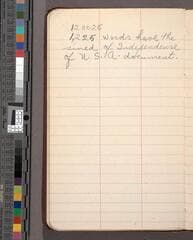 120025
1,225 words have the
sined of Independense
of U.S.A. document.